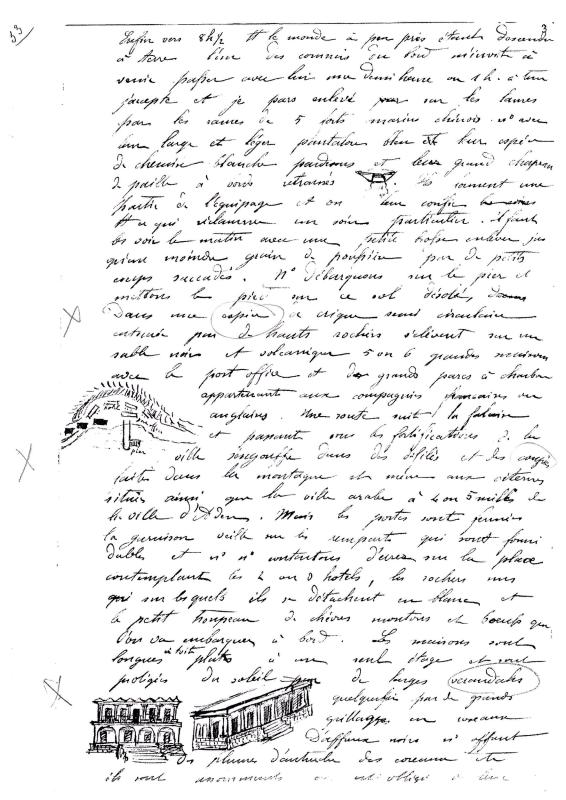 53
3
Enfin vers 8h½ tt le monde à peu près étant descendu
à terre l'un des commis du bord m'invite à
venir passer avec lui une demi heure ou 1 h. à terre
j'accepte et je pars enlevé sur les lames
par les rames de 5 forts marins chinois. avec
leur large et léger pantalon bleu et leur espèce
de chemise blanche et leur grand chapeau
de paille à bords retroussés. Ils forment une
partie de l'équipage et on leur confie
tt ce qui réclame un soin particulier. il faut
les voir le matin avec une petite brosse enlever jus
qu'au moindre grain de poussière par de petits
coups saccadés. Ns débarquons sur le pier et
mettons le pied sur ce sol désolé,
Dans une espèce de crique semi circulaire
entourée par de hauts rochers s'élèvent sur un
sable noir et volcanique 5 ou 6 grandes maisons
avec le post office et de grands parcs à charbon
appartenant aux compagnies françaises ou
anglaises. Une route suit la falaise
et passant sous les fortifications de la
ville s'engouffre dans des défilés et des coupées
faites dans la montagne et mène aux citernes
situées ainsi que la ville arabe à 4 ou 5 milles de
la ville d'Aden. Mais les portes sont fermées
la garnison veille sur les remparts qui sont formi
dables et ns ns contentons d'errer sur la place
contemplant les 2 ou 3 hotels, les rochers nus
sur lesquels ils se détachent en blanc et
le petit troupeau de chèvres moutons et boeufs que
l'on va embarquer à bord. Les maisons sont
longues à toits plats à un seul étage et sont
protégées du soleil par de larges verandahs
quelquefois par de grands
grillages en roseaux
D'affreux noirs ns offrent
des plumes d'autruche des coraux etc
ils sont on est obligé de